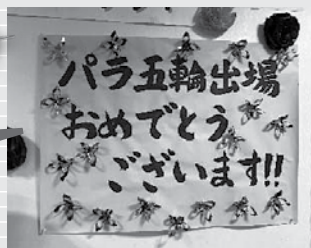 パラ五輪出場
おめでとう
ございます!!